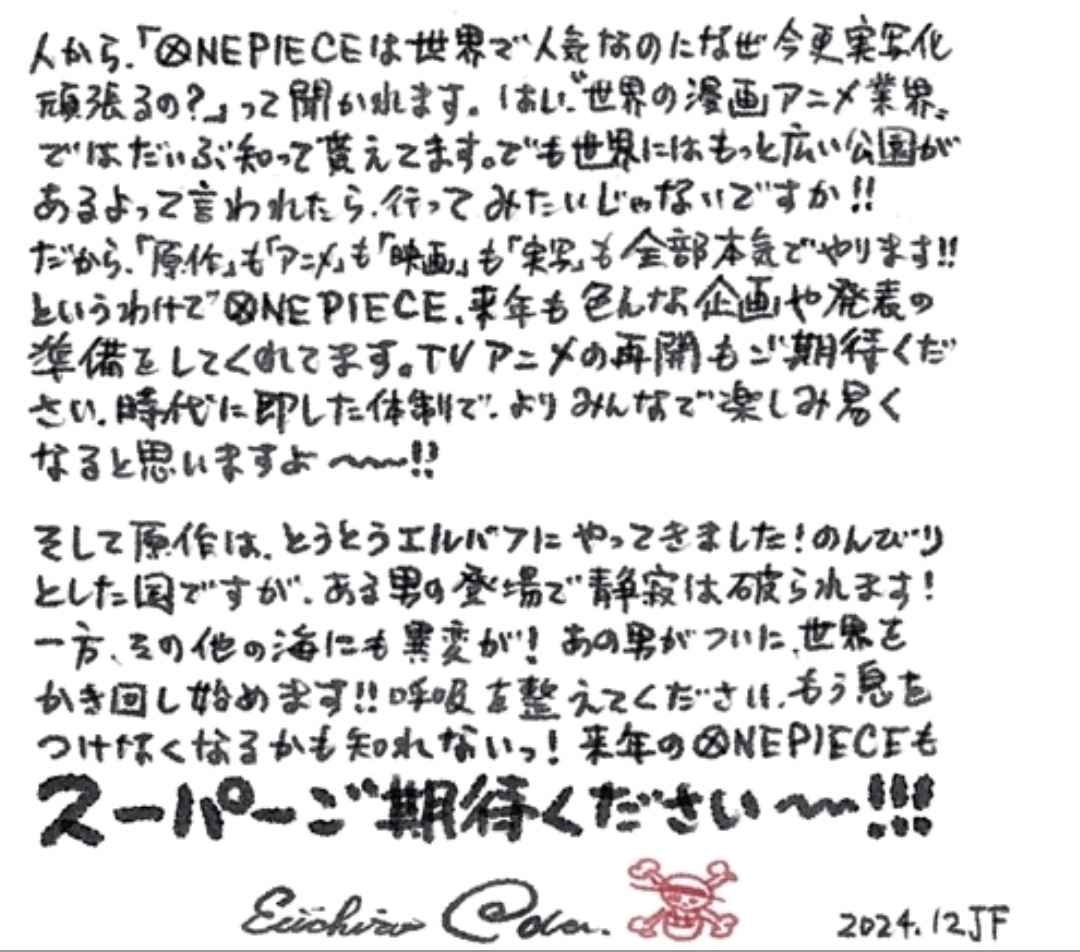 人から、「ONE PIECEは世界で人気なのになぜ今更実写化
頑張るの?」って聞かれます。はい、世界の漫画アニメ業界、
ではだいぶ知って貰えてます。でも世界にはもっと広い公園が
あるよって言われたら、行ってみたいじゃないですか!!
だから、「原作」も「アニメ」も「映画」も「実写」も全部本気でやります!!
というわけで ONE PIECE、来年も色んな企画や発表の
準備をしてくれてます。TVアニメの再開もご期待くだ
さい。時代に即した体制で、よりみんなで楽しみ易く
なると思いますよ〜〜!!
そして原作は、とうとうエルバフにやってきました!のんびり
とした国ですが、ある男の登場で静寂は破られます!
一方、その他の海にも異変が!あの男がついに、世界を
かき回し始めます!!呼吸を整えてください、もう息を
つけなくなるかも知れないっ!来年のONE PIECEも
スーパーご期待ください〜〜!!!
Eiichiro Oda.
2024.12JF